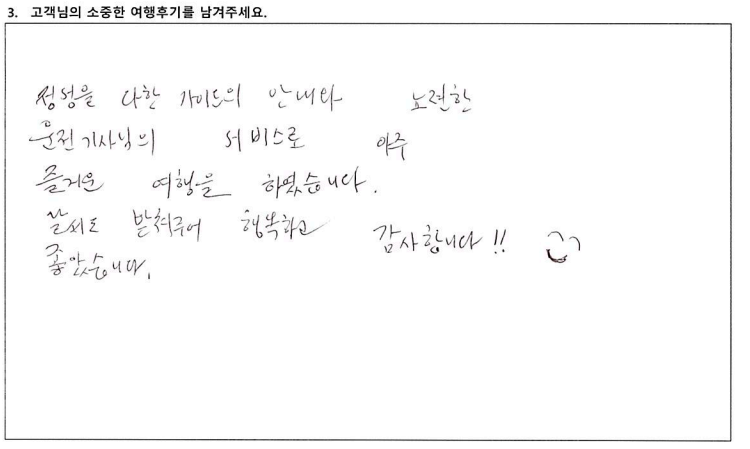 3. 고객님의 소중한 여행후기를 남겨주세요.
정성을 다한 가이드의 안내와 노련한
운전기사님의 서비스로 아주
즐거운 여행을 하였습니다.
날씨도 받쳐주어 행복하고 감사합니다!!
좋았습니다.